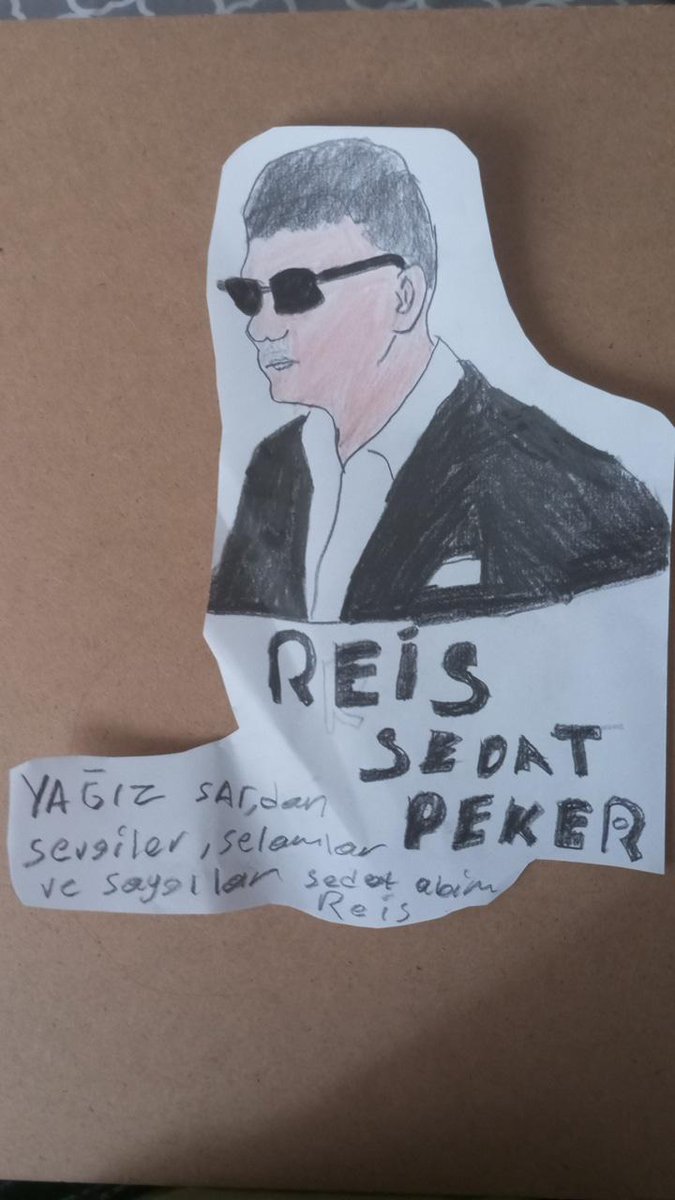 REİS
SEDAT
PEKER
YAĞIZ SARı,dan
sevgiler, selamlar
ve saygılar sedat abim
Reis